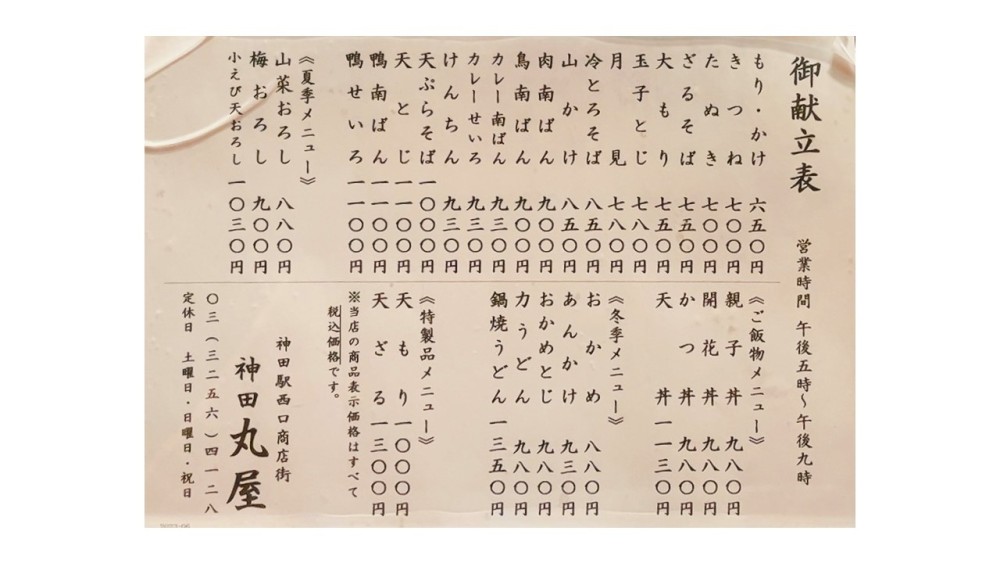 御献立表
営業時間 午後五時〜午後九時
もり・かけ 六五〇円
きつね 七〇〇円
たぬき 七〇〇円
ざるそば 七五〇円
大もり 七五〇円
玉子とじ 七八〇円
月見 七八〇円
冷とろそば 八五〇円
山かけ 八五〇円
肉南ばん 九〇〇円
鳥南ばん 九〇〇円
カレー南ばん 九三〇円
カレーせいろ 九三〇円
けんちん 九三〇円
天ぷらそば 一〇〇〇円
天とじ 一一〇〇円
鴨南ばん 一一〇〇円
鴨せいろ 一一〇〇円
《夏季メニュー》
山菜おろし 八八〇円
梅おろし 九〇〇円
小えび天おろし 一〇三〇円
《ご飯物メニュー》
親子丼 九八〇円
開花丼 九八〇円
かつ丼 九八〇円
天丼 一一三〇円
《冬季メニュー》
おかめ 八八〇円
あんかけ 九三〇円
おかめとじ 九八〇円
力うどん 九八〇円
鍋焼うどん 一三五〇円
《特製品メニュー》
天もり 一〇〇〇円
天ざる 一三〇〇円
※当店の商品表示価格はすべて
税込価格です。
神田駅西口商店街
神田 丸屋
〇三(三二五六)四一二八
定休日 土曜日・日曜日・祝日